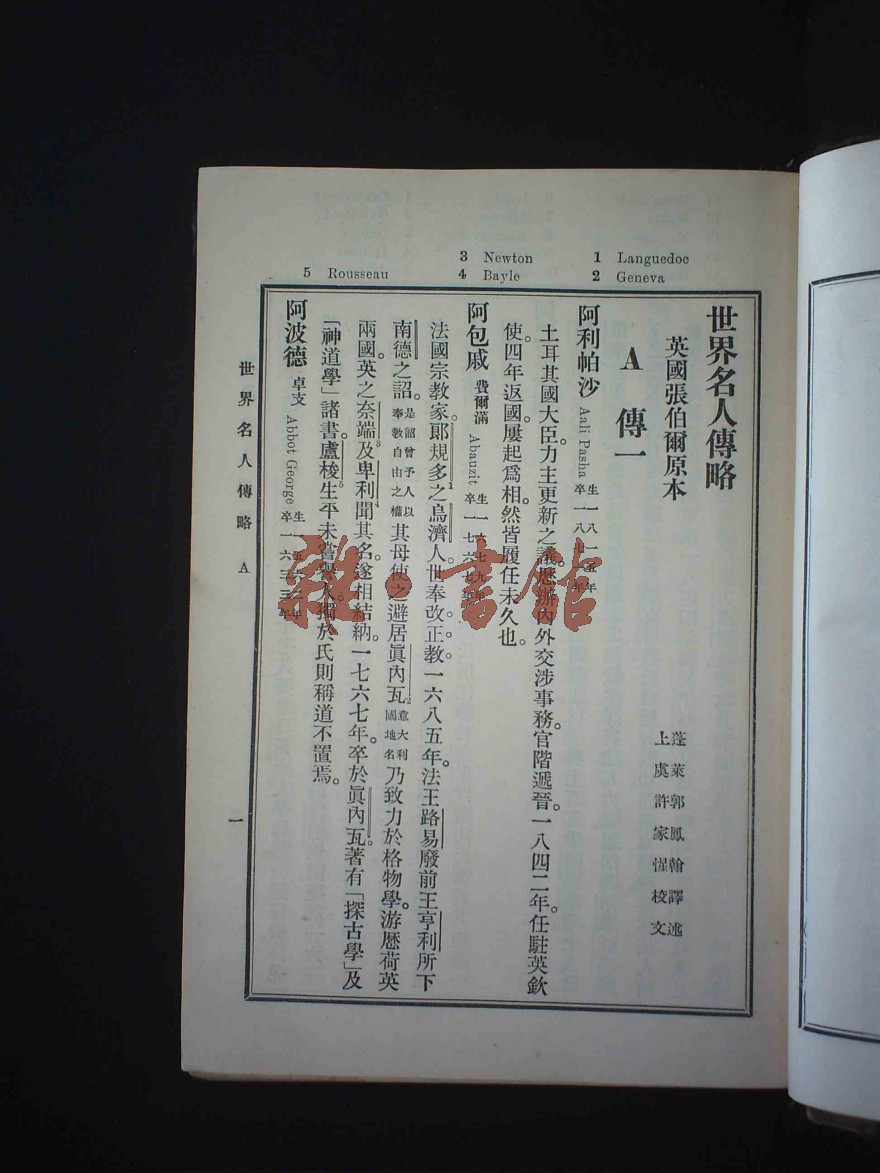 1 Languedoc
2 Geneva
3 Newton
4 Bayle
5 Rousseau
世界名人傳略
英國張伯爾原本
蓬萊郭鳳翰譯述
上虞許家惺校文
A 傳一
阿利帕沙 Aali Pasha 生一八一五年 卒一八七一年
土耳其國大臣。力主更新之議。歷辦內外交涉事務。官階遞晉。一八四二年。任駐英欽
使。四年返國。屢起爲相。然皆履任未久也。
阿包戚 費爾滿 Abauzit 生一六七九年 卒一七六七年
法國宗教家。郎規多1之烏濟人。世奉改正教。一六八五年。法王路易廢前王亨利所下
南德之詔。是詔曾予人以奉教自由之權 其母使之避居眞內瓦2意大利國地名 乃致力於格物學。游歷荷英
兩國。英之奈端3及卑利4聞其名。遂相結納。一七六七年。卒於眞內瓦。著有「探古學」及
「神道學」諸書。盧梭5生平未嘗譽人。獨於氏則稱道不置焉。
阿波德 卓支 Abbot George 生一五六二年 卒一六三三年
世界名人傳略 A
一
雜·書館